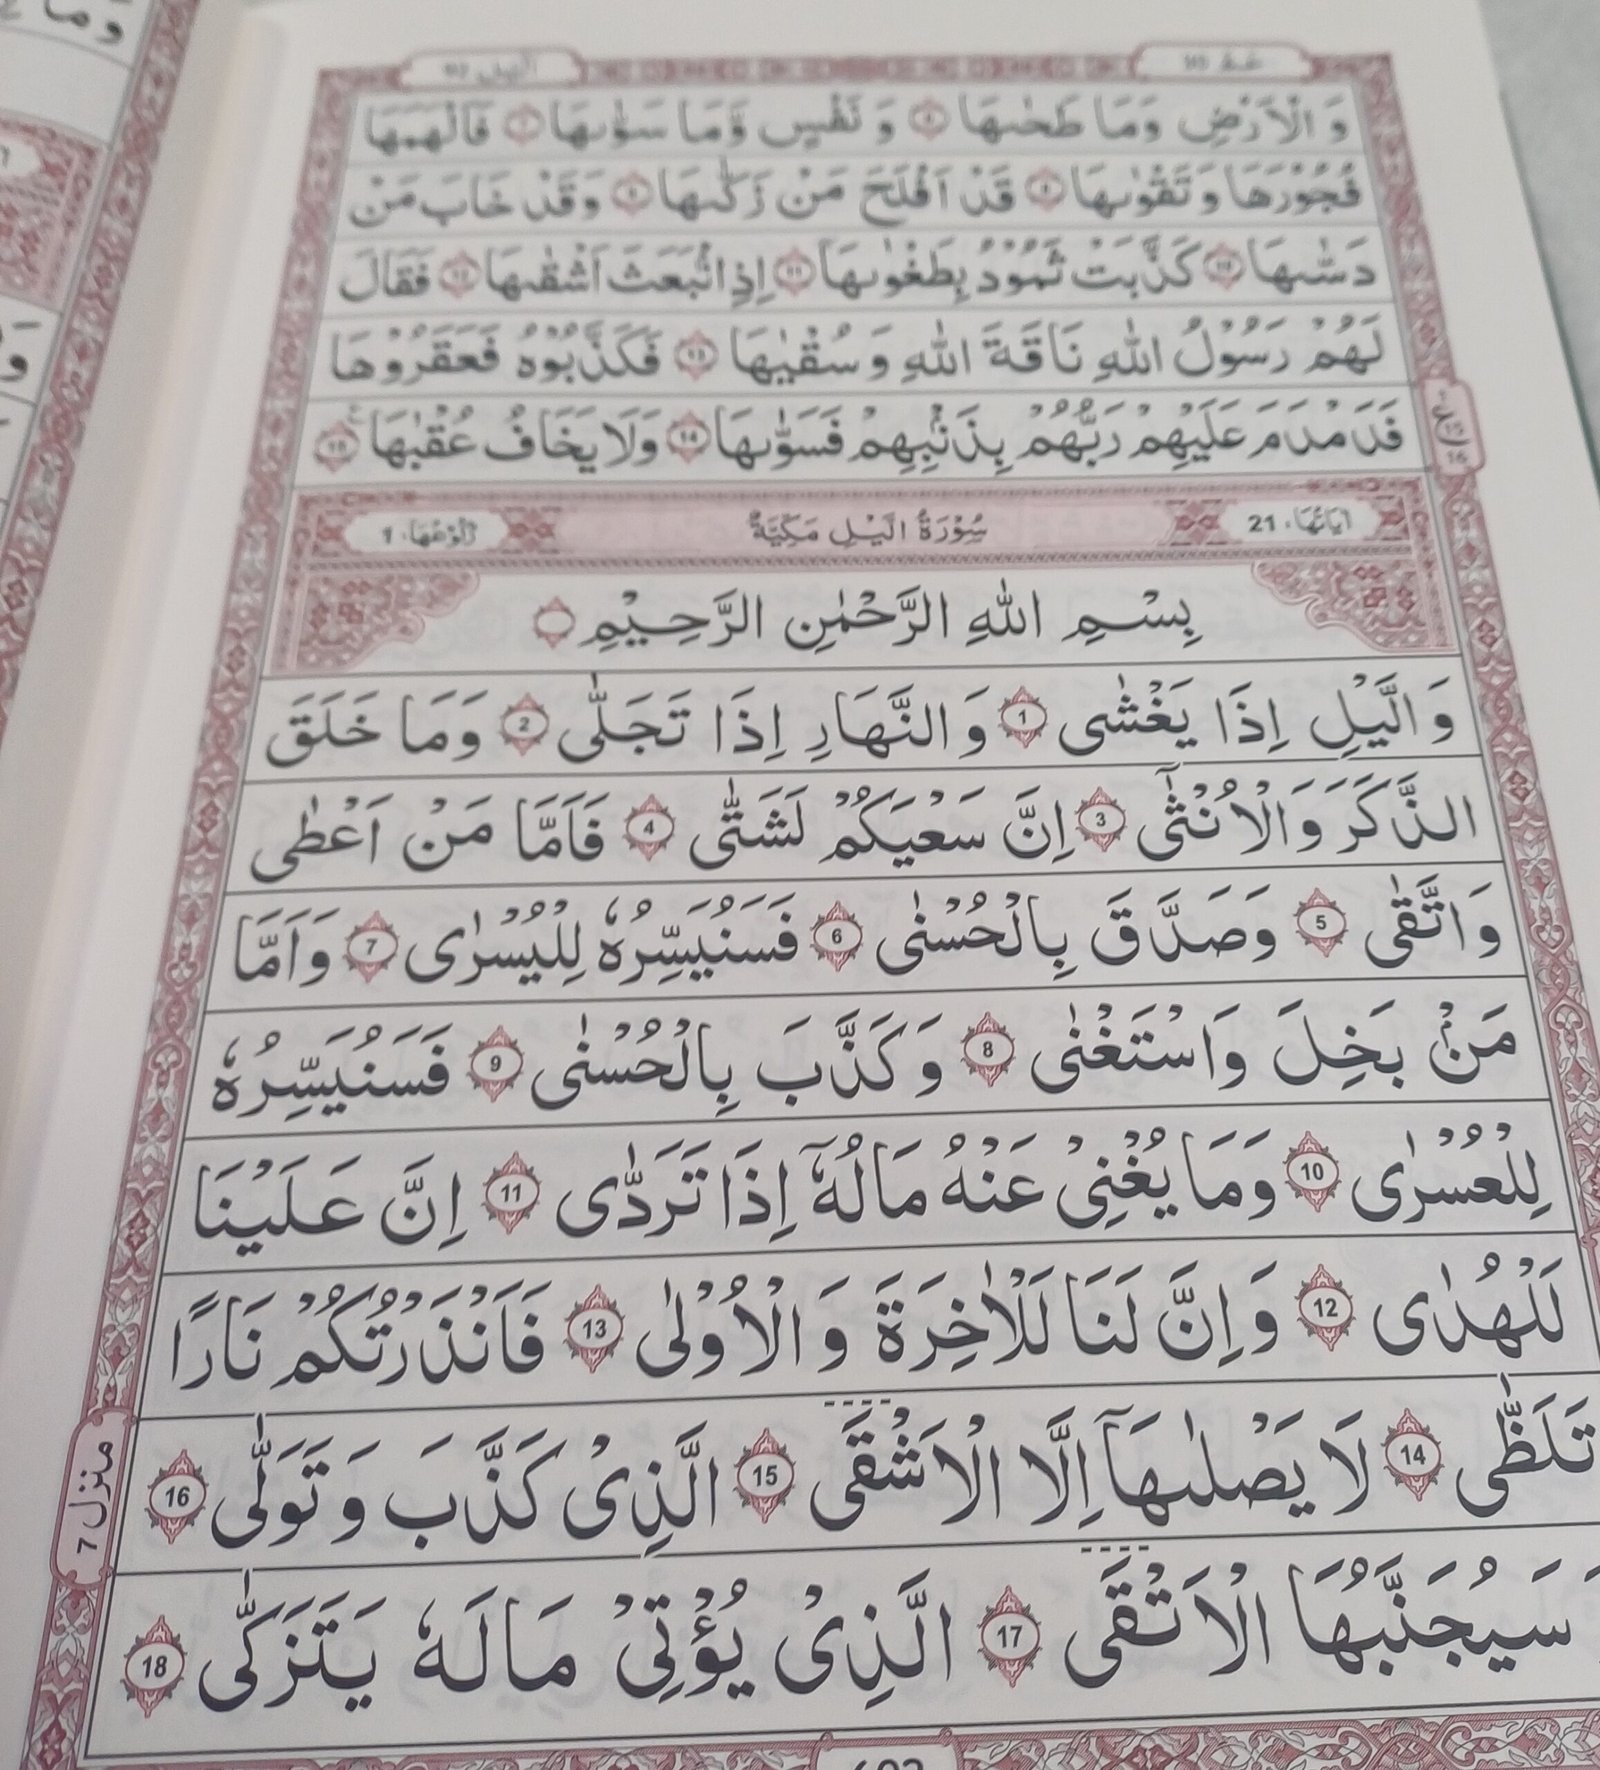 عم 30 الیل 92
وَ الْاَرْضِ وَمَا طَحٰىهَا ۝6 وَ نَفْسٍ وَّمَا سَوّٰىهَا ۝7 فَاَلْهَمَهَا
فُجُوْرَهَا وَ تَقْوٰىهَا ۝8 قَدْ اَفْلَحَ مَنْ زَكّٰىهَا ۝9 وَقَدْ خَابَ مَنْ
دَسّٰىهَا ۝10 كَذَّبَتْ ثَمُوْدُ بِطَغْوٰىهَا ۝11 اِذِ انْۢبَعَثَ اَشْقٰىهَا ۝12 فَقَالَ
لَهُمْ رَسُوْلُ اللّٰهِ نَاقَةَ اللّٰهِ وَ سُقْيٰهَا ۝13 فَكَذَّبُوْهُ فَعَقَرُوْهَا
فَدَمْدَمَ عَلَيْهِمْ رَبُّهُمْ بِذَنْۢبِهِمْ فَسَوّٰىهَا ۝14 وَلَا يَخَافُ عُقْبٰهَا ۝15
15
16
اٰيَاتُهَا، 21 سُوْرَةُ الَّيْلِ مَكِّيَّةٌ رُكُوْعُهَا، 1
بِسْمِ اللّٰهِ الرَّحْمٰنِ الرَّحِيْمِ
وَ الَّيْلِ اِذَا يَغْشٰى ۝1 وَ النَّهَارِ اِذَا تَجَلّٰى ۝2 وَمَا خَلَقَ
الذَّكَرَ وَ الْاُنْثٰٓى ۝3 اِنَّ سَعْيَكُمْ لَشَتّٰى ۝4 فَاَمَّا مَنْ اَعْطٰى
وَ اتَّقٰى ۝5 وَصَدَّقَ بِالْحُسْنٰى ۝6 فَسَنُيَسِّرُهٗ لِلْيُسْرٰى ۝7 وَ اَمَّا
مَنْۢ بَخِلَ وَاسْتَغْنٰى ۝8 وَكَذَّبَ بِالْحُسْنٰى ۝9 فَسَنُيَسِّرُهٗ
لِلْعُسْرٰى ۝10 وَمَا يُغْنِيْ عَنْهُ مَالُهٗٓ اِذَا تَرَدّٰى ۝11 اِنَّ عَلَيْنَا
لَلْهُدٰى ۝12 وَاِنَّ لَنَا لَلْاٰخِرَةَ وَ الْاُوْلٰى ۝13 فَاَنْذَرْتُكُمْ نَارًا
تَلَظّٰى ۝14 لَا يَصْلٰىهَآ اِلَّا الْاَشْقَى ۝15 الَّذِيْ كَذَّبَ وَ تَوَلّٰى ۝16
منزل 7
سَيُجَنَّبُهَا الْاَتْقَى ۝17 الَّذِيْ يُؤْتِيْ مَالَهٗ يَتَزَكّٰى ۝18